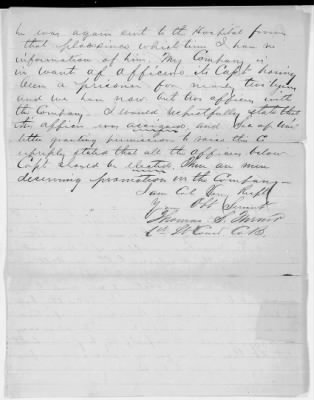 he was again sent to the Hospital from
that place since which time I have no
information of him. My Company is
in want of officers its Capt having
been a prisoner for nearly two years
and we have now but two officers with
the Company. I would respectfully state that
this officer was assigned and the
letter granting permission to raise this Co
stated that all the officers below
Capt should be elected. There are men
deserving promotion in the Company—
I am Col Very Respfly
Your Obt Servant
Thomas S.
Comd Co